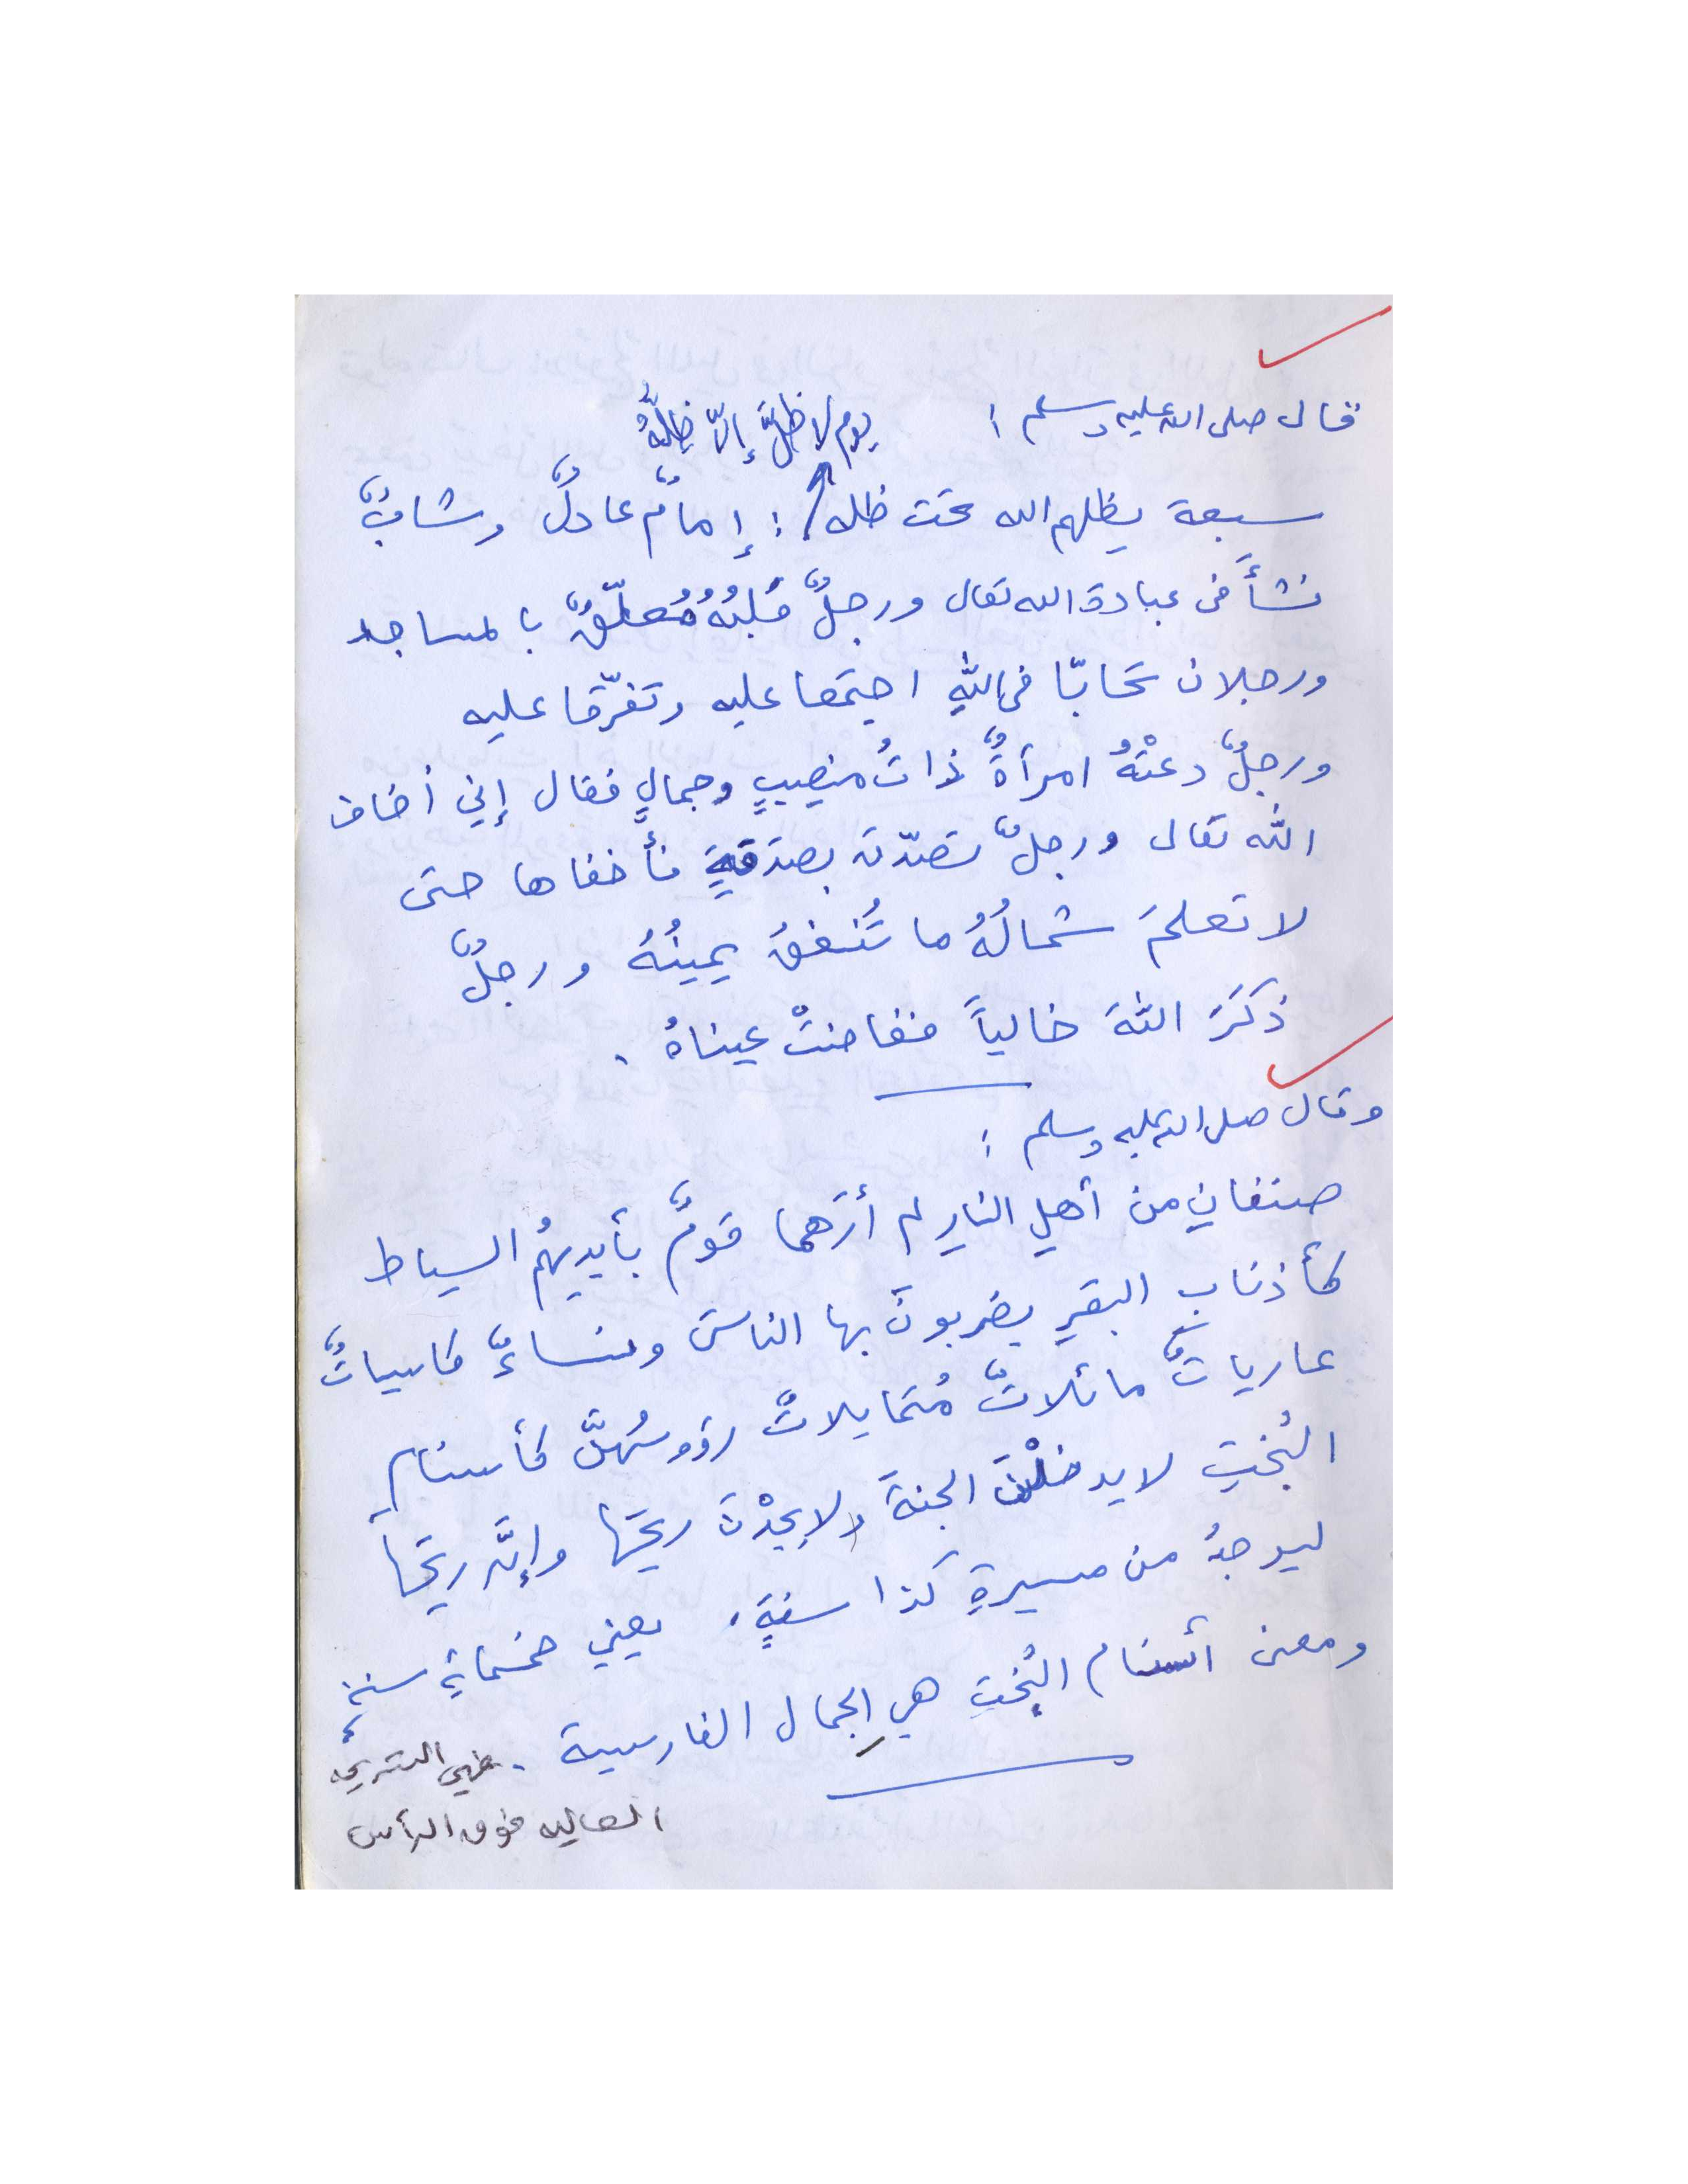 قال صلى الله عليه وسلم :
يوم لا ظلَّ إلاّ ظلُّهُ
سبعة يظلهم الله تحت ظله : إمامٌ عادلٌ وشابٌّ
نشأَ في عبادة الله تعالى ورجلٌ قلبُهُ مُعلّقٌ بالمساجد
ورجلان تحابّا في اللهِ اجتمعا عليه وتفرّقا عليه
ورجلٌ دعتْهُ امرأةٌ ذاتُ منصبٍ وجمالٍ فقال إني أخاف
الله تعالى ورجلٌ تصدّق بصدقةٍ فأخفاها حتى
لا تعلمَ شمالُهُ ما تُنفقُ يمينُهُ ورجلٌ
ذكَرَ اللهَ خالياً ففاضتْ عيناهُ .
وقال صلى الله عليه وسلم :
صنفانِ من أهلِ النارِ لم أرَهما قومٌ بأيديهُم السياط
كأذنابِ البقرِ يضربونَ بها الناسَ ونساءٌ كاسياتٌ
عارياتٌ مائلاتٌ مُتمايلاتٌ رؤوسُهنَّ كأسنام
البُختِ لا يدخلْنَ الجنةَ ولا يجدْنَ ريحَها وإنَّ ريحَها
ليوجدُ من مسيرةِ كذا سنةٍ . يعني خمسمايةِ سنةٍ
ومعنى أسنام البُختِ هي الجمال الفارسية . هي التسريحه
العاليه فوق الرأس